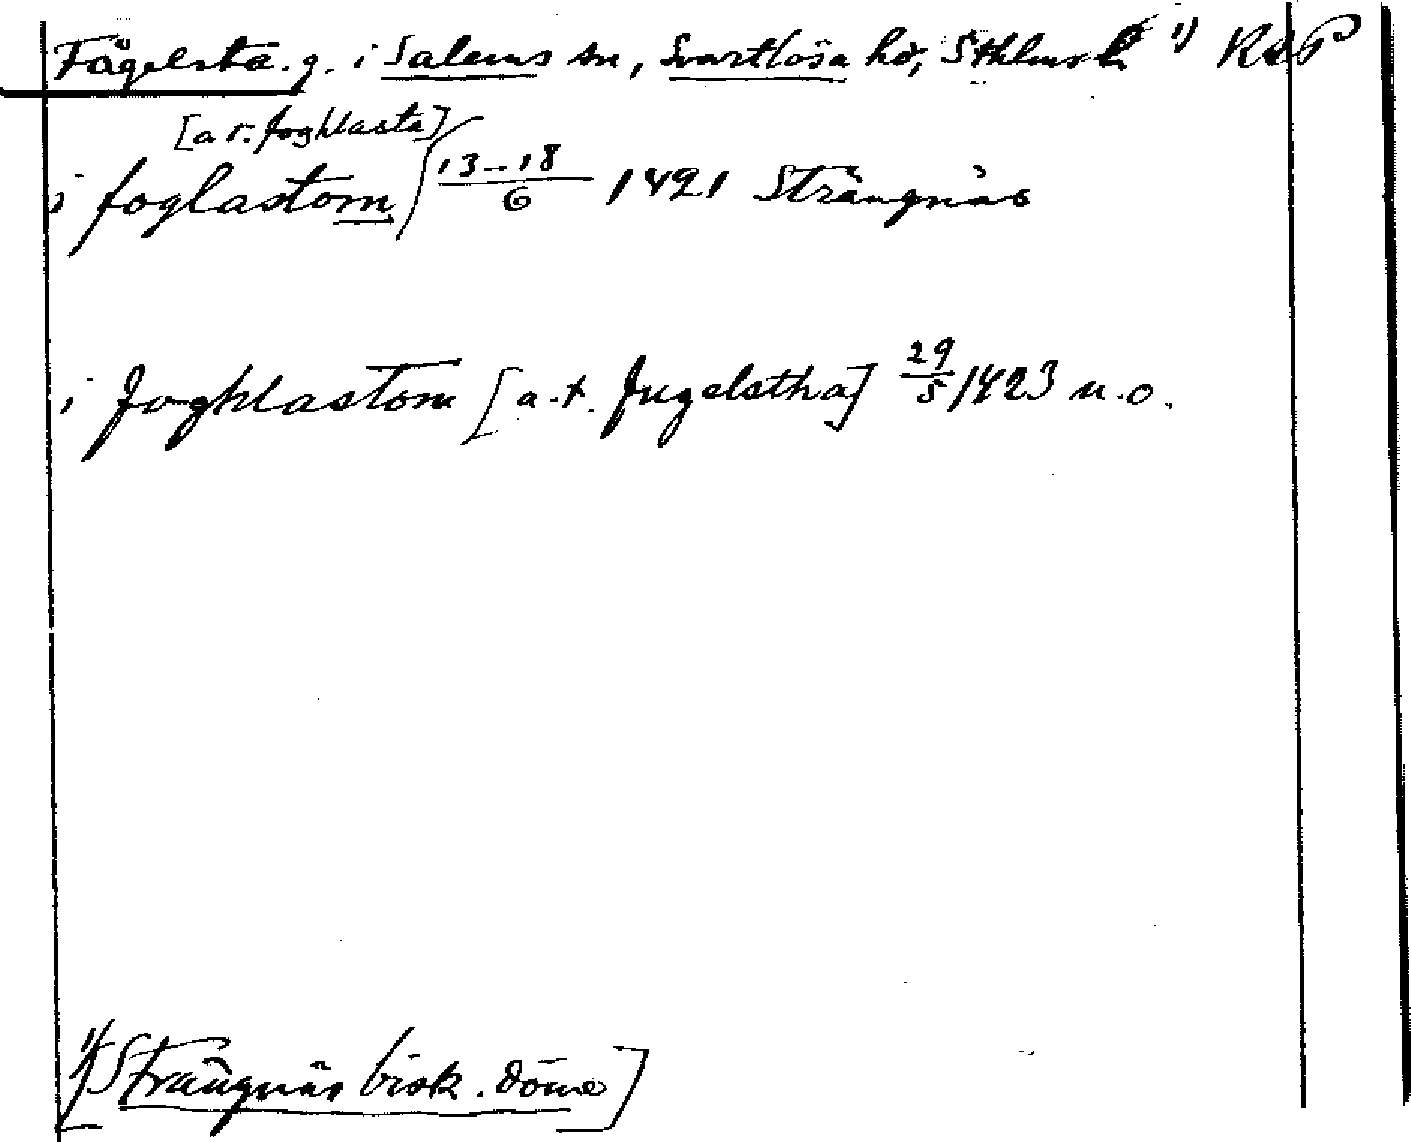 Fågelsta. g. i Salems sn, Svartlösa hd, Sthlms l. 1) RAP
[a r. foghlasta]
i foglastom 13-18/6 1421 Strängnäs
i Foghlastom [a. t. Fugelstha] 29/5 1423 u. o.
1) [Strängnäs bisk. döme]